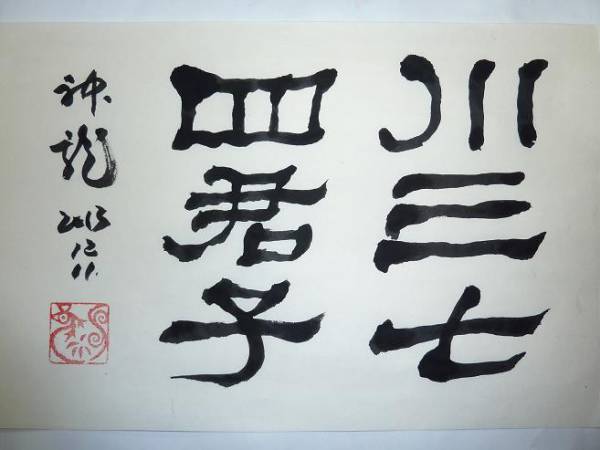 川三七
四君子
神龙
2013
12
11